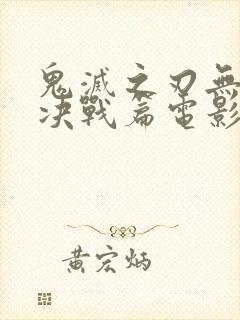 鬼滅之刃無
决戰篇電影
黄宏炳